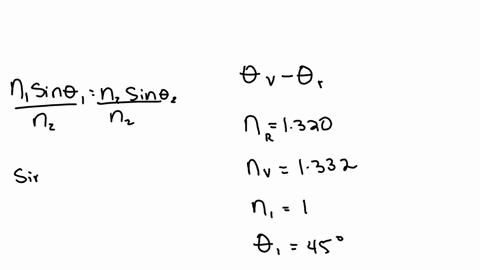 n₁ Sinθ₁ = n₂ Sinθ₂
n₂ n₂
Sir
θ_v − θ_r
n_R = 1.320
n_v = 1.332
n₁ = 1
θ₁ = 45°